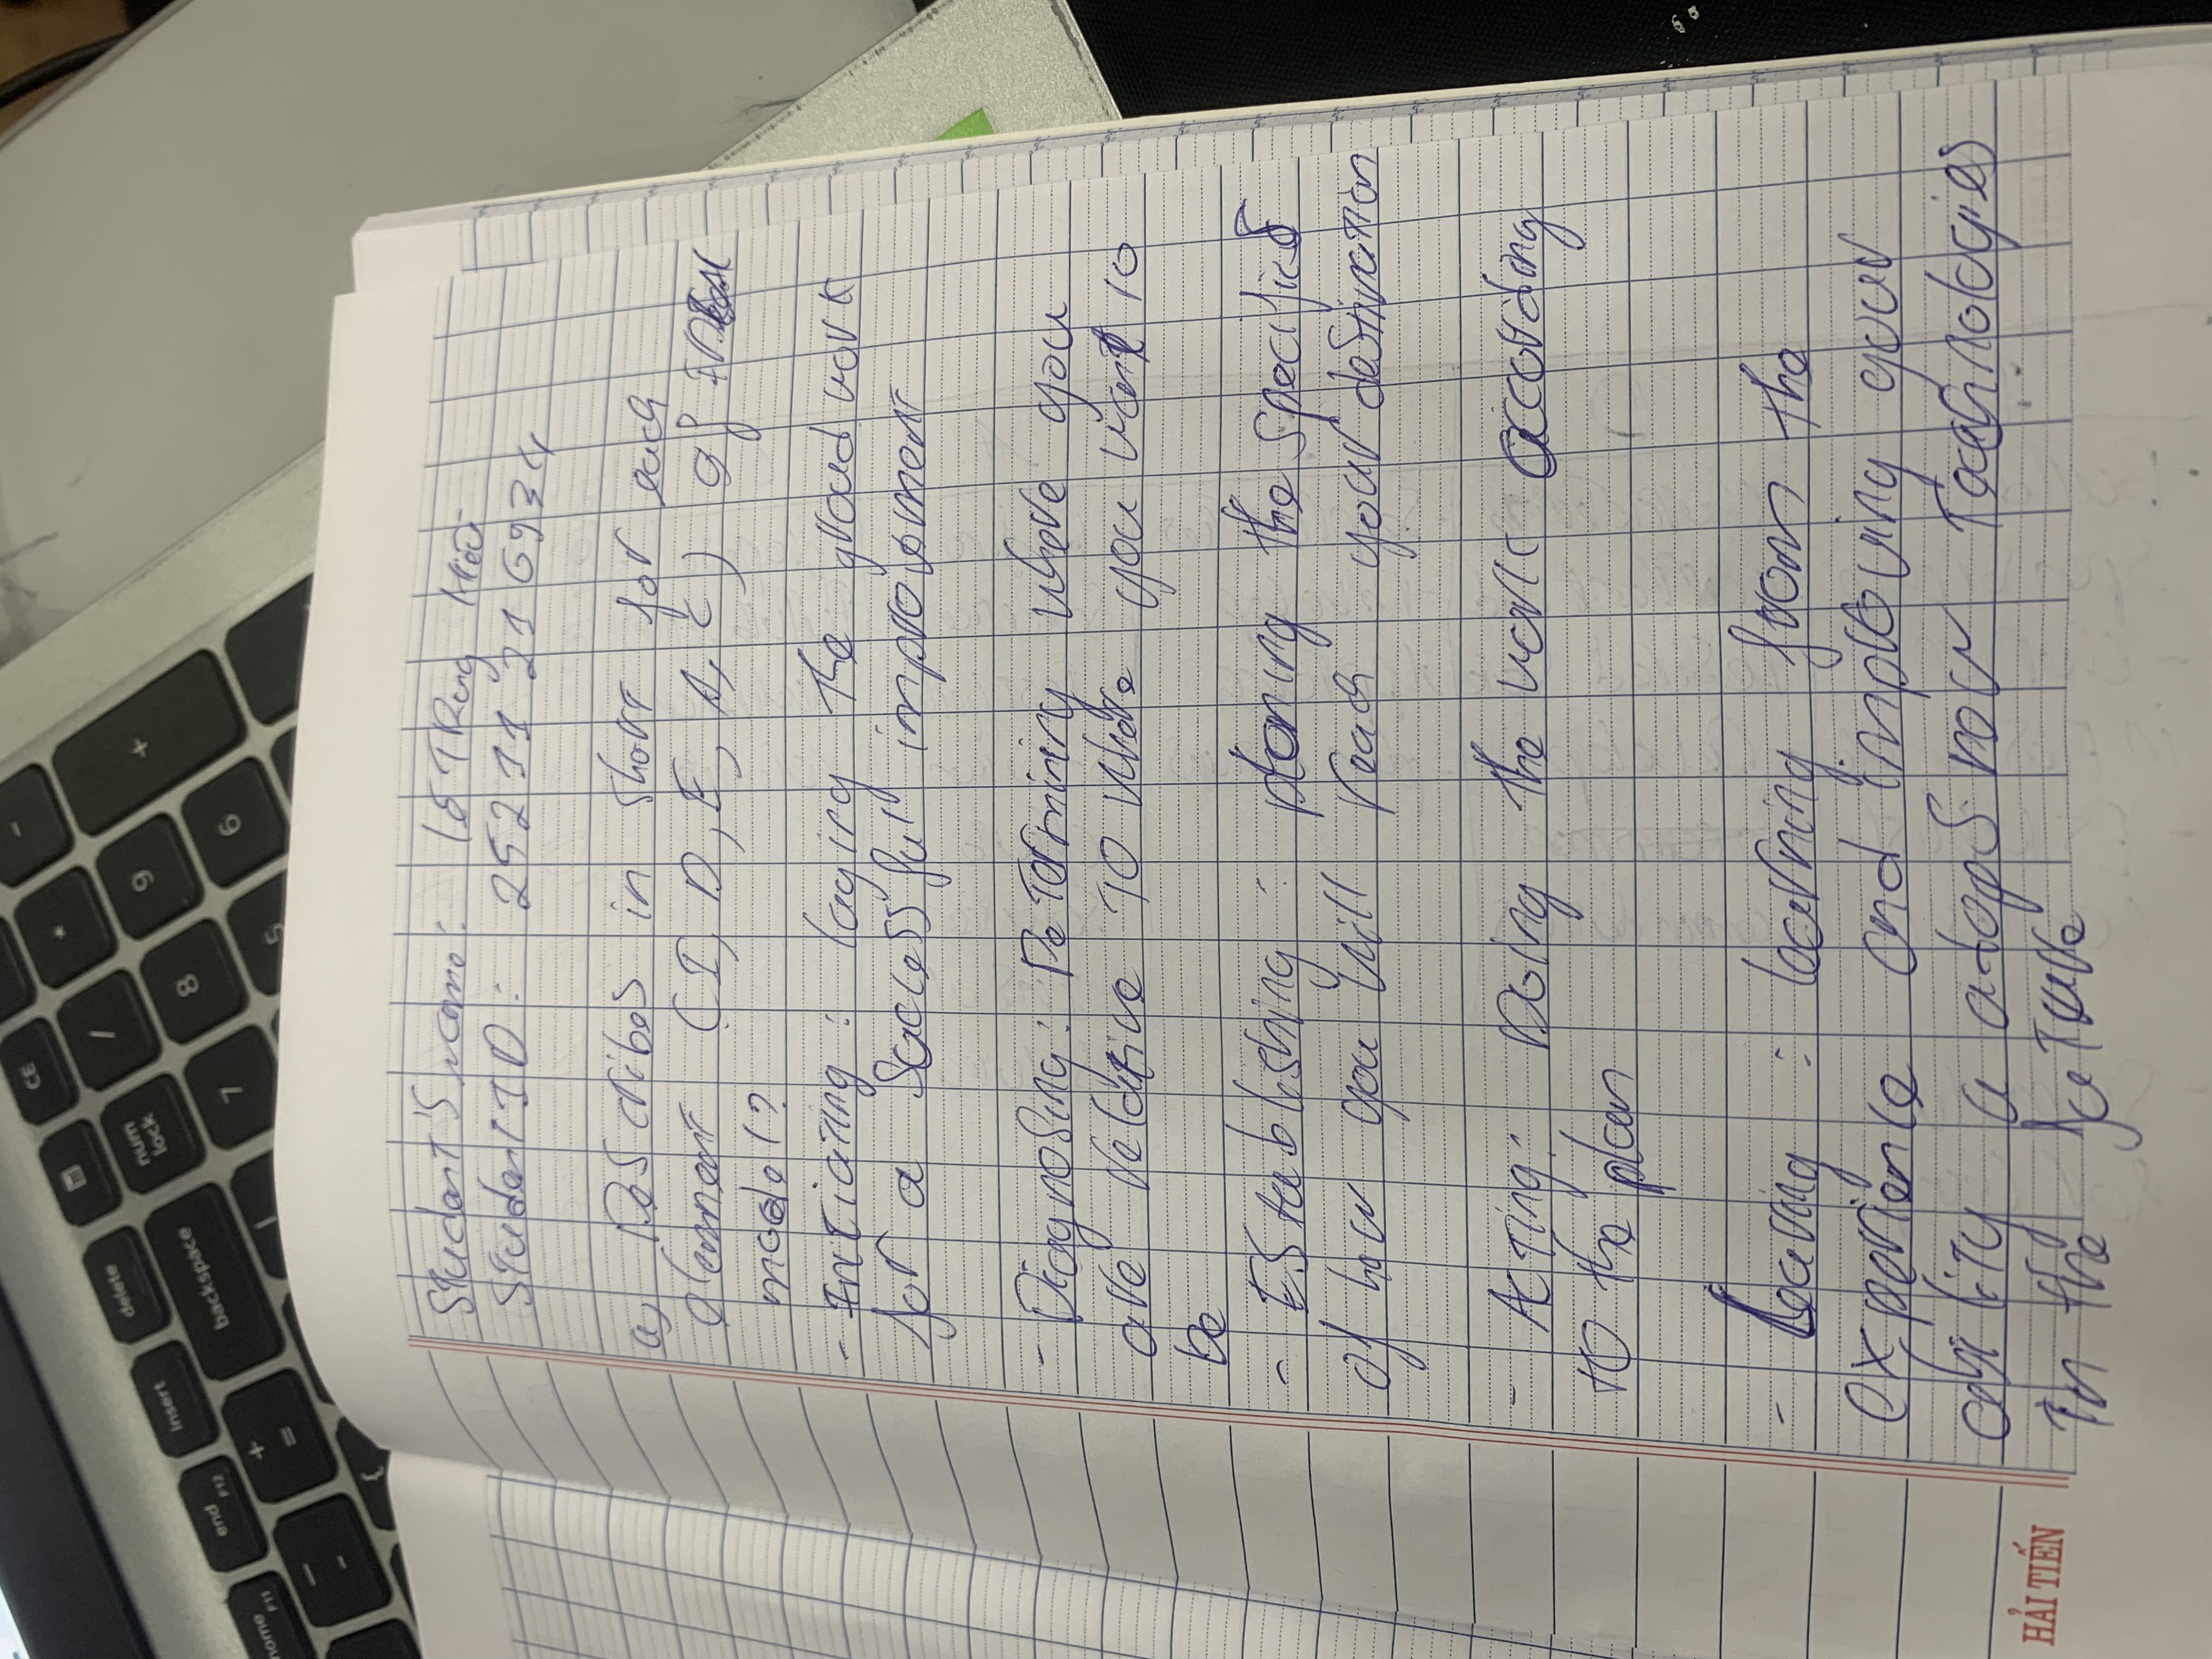 CE
-
delete
*
insert
num
lock
/
9
+
end F12
backspace
8
home F11
+
=
7
6
-
5
{
Student's name: Lê TRung Hiếu
Student ID: 25211216934
a, Describes in short for each
element (I, D, E, A, L) of IDEAL
model?
- Initiating: laying the groud work
for a Successful improvement
- Diagnosing: Determining where you
are relative to where you want to
be
- Establishing: planing the specifics
of how you will reach your destination
- Acting: Doing the work according
to the plan
- Learing: learning from the
experience and improving your
ability a adops new Technologies
in the future
HẢI TIẾN